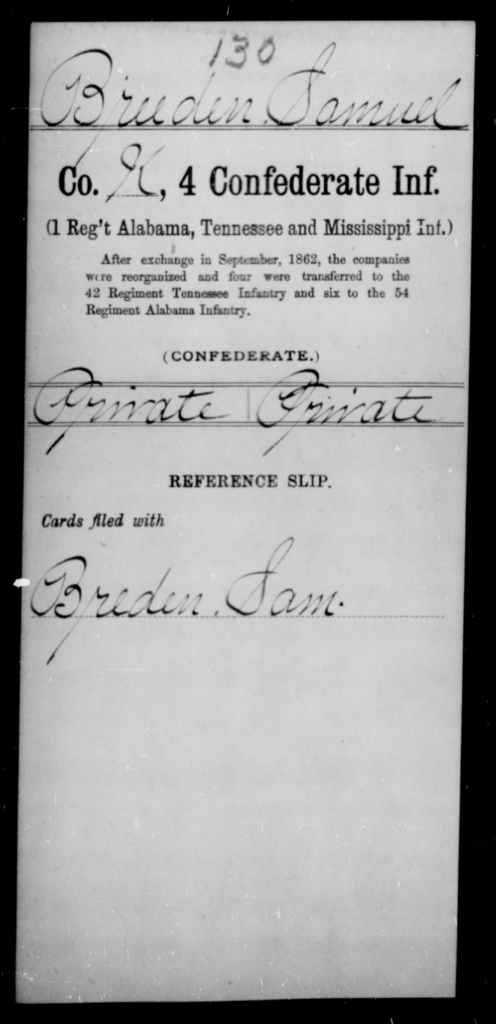 130
Breeden, Samuel
Co. K, 4 Confederate Inf.
(1 Reg't Alabama, Tennessee and Mississippi Inf.)
After exchange in September, 1862, the companies
were reorganized and four were transferred to the
42 Regiment Tennessee Infantry and six to the 54
Regiment Alabama Infantry.
(CONFEDERATE.)
Private | Private
REFERENCE SLIP.
Cards filed with
Breden, Sam.